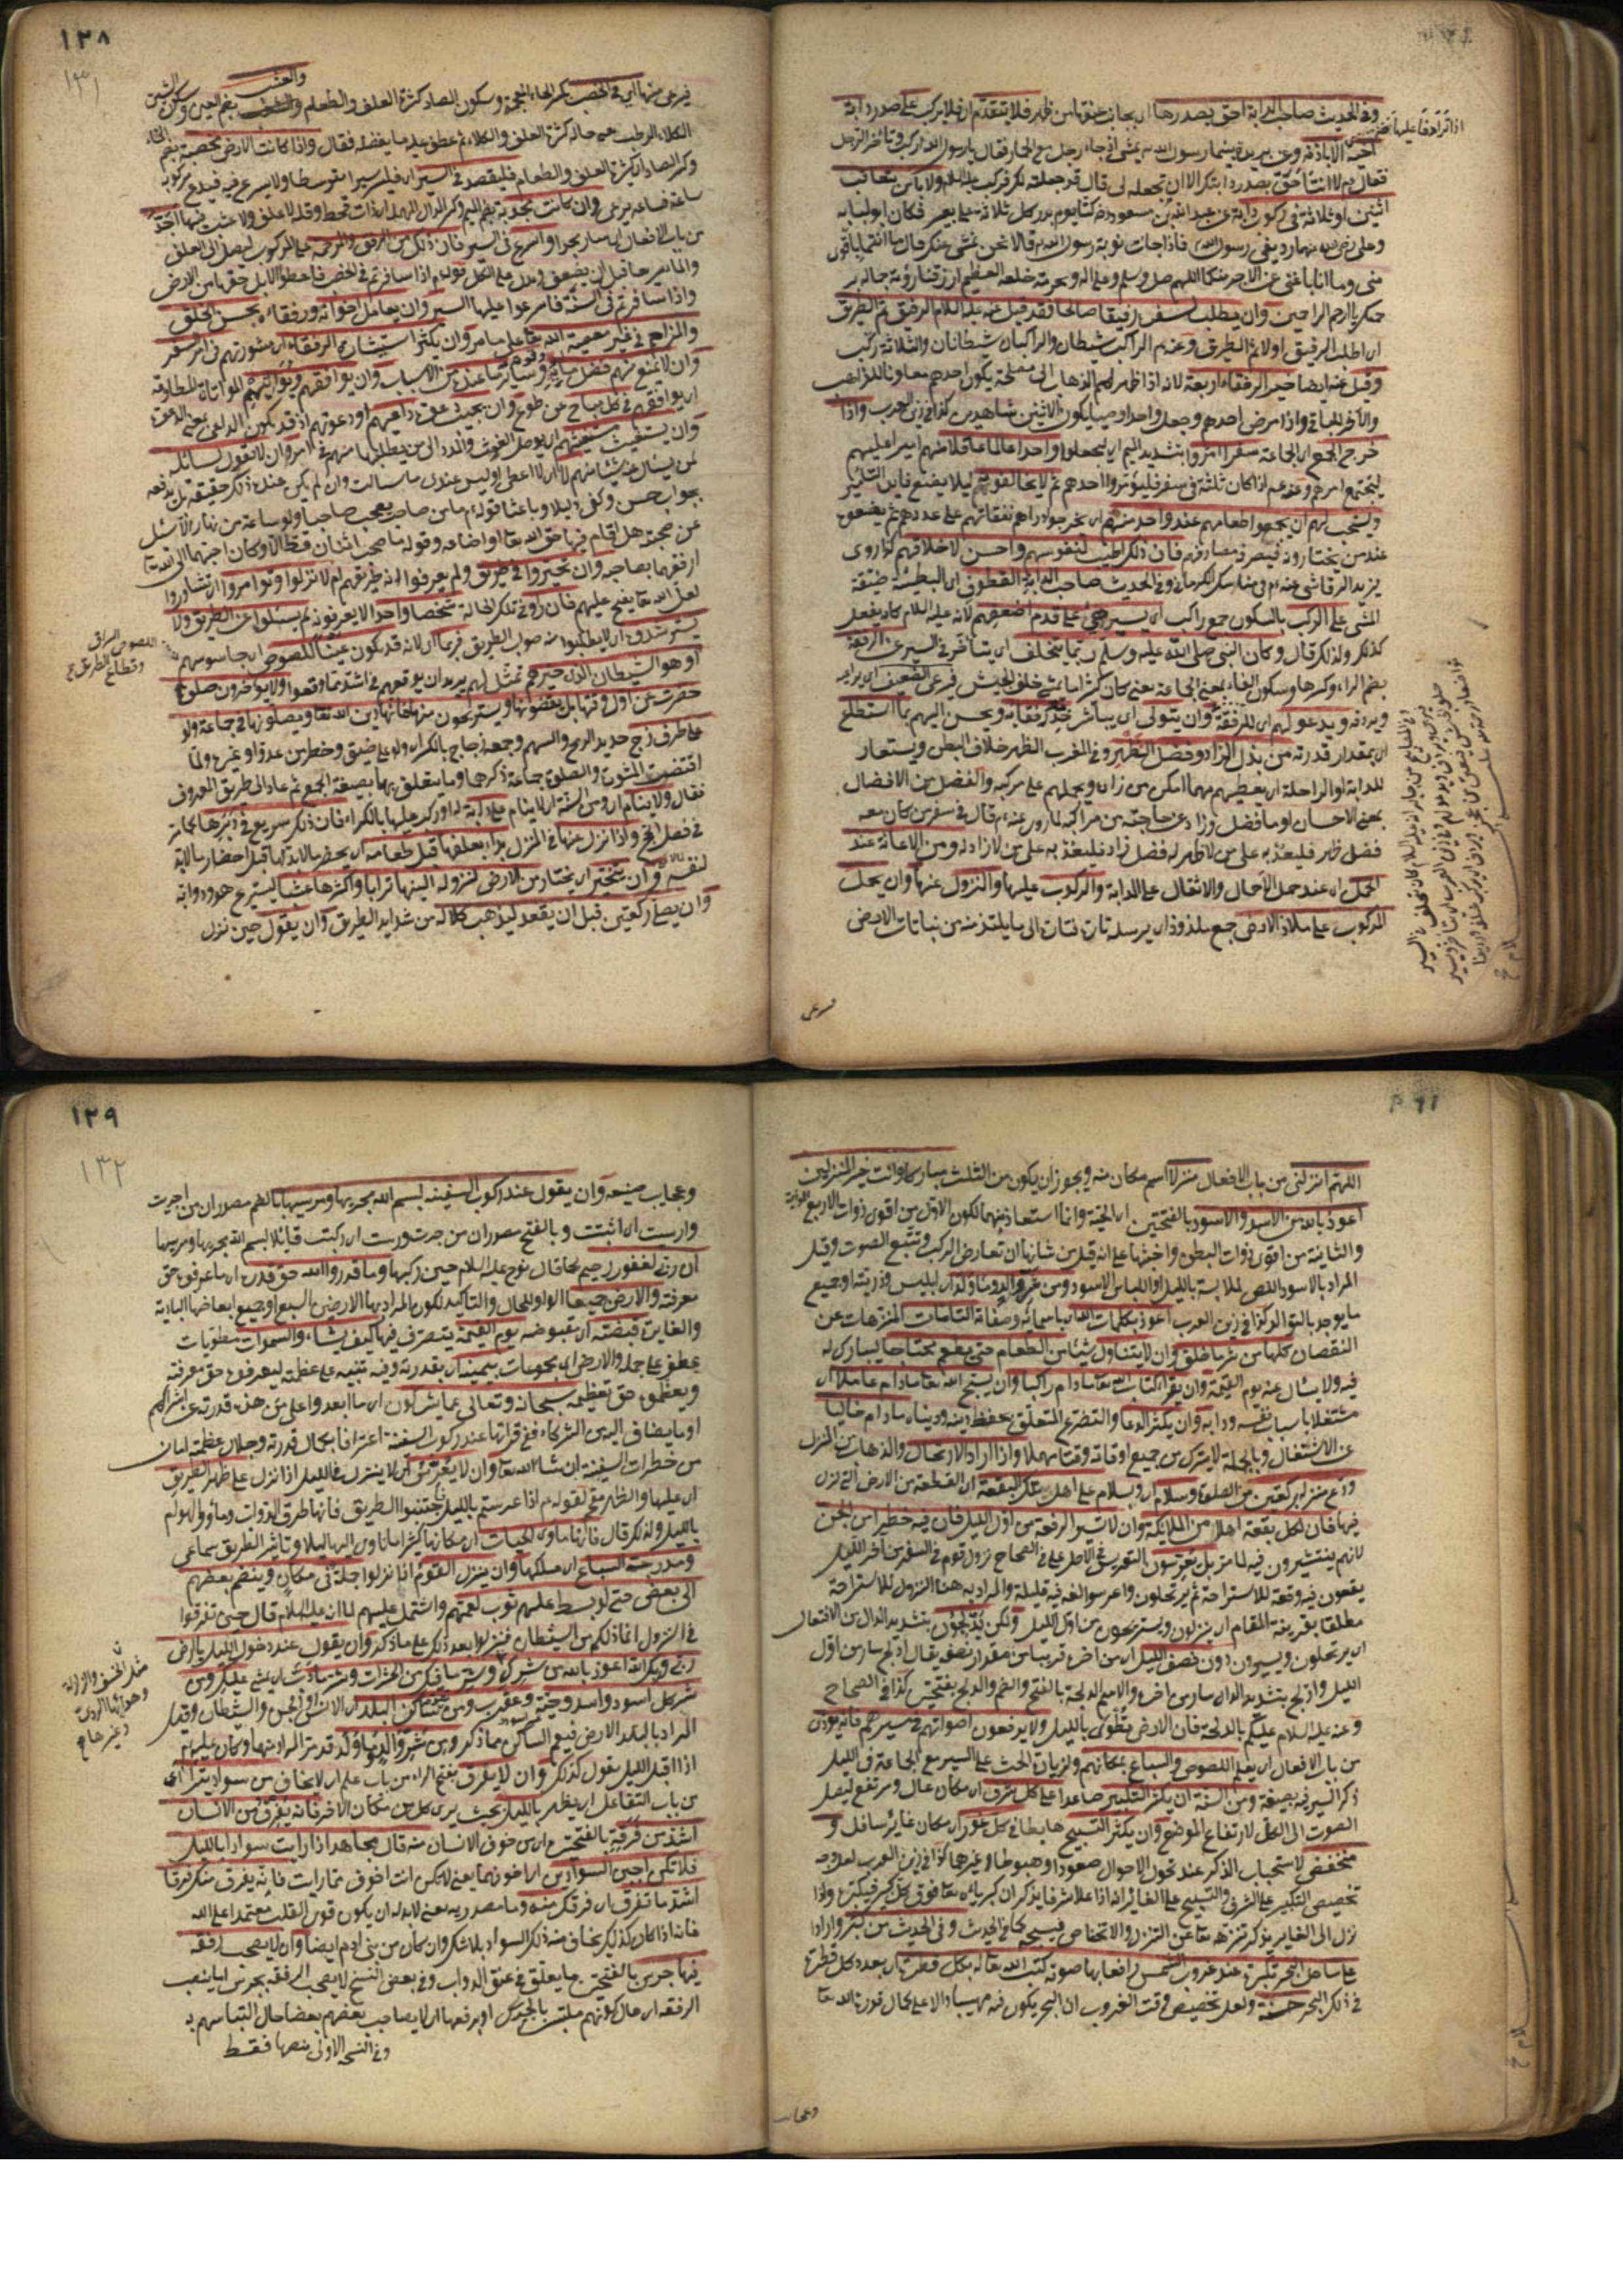 وفي الحديث صاحب الدابة احق بصدرها اي بجانب عنقها من ظهر فلا يتقدم اي فلا يركب على صدر دابة
اخيه الا باذنه وعن بريدة بينما رسول الله يمشي اذ جاء رجل مع الحمار فقال يا رسول الله اركب وتأخر الرجل
فقال لا انت احق بصدر دابتك الا ان تجعله لي قال قد جعلته لك فركب ولا بأس بتعاقب
اثنين او ثلاثة في ركوب دابة عن عبد الله بن مسعود كنا يوم بدر كل ثلاثة على بعير فكان ابو لبابة
وعلي رديفي رسول الله فاذا جاءت نوبة رسول الله قالا نحن نمشي عنك قال ما انتما باقوى
مني وما انا باغنى عن الاجر منكما
يا ارحم الراحمين وان يطلب لسفر رفيقا صالحا فقد قيل عنه عليه السلام الرفيق ثم الطريق
اي اطلب الرفيق اولا ثم الطريق وعنه الراكب شيطان والراكبان شيطانان والثلاثة ركب
وقيل عنه ايضا خير الرفقاء اربعة لانه اذا ظهر لهم الذهاب الى مصلحة يكون احدهم معاونا للذاهب
والآخر للباقي واذا مرض احدهم وجعل واحدا وصيا يكون الاثنين شاهدين كذا في زين العرب واذا
خرج الجمع اي الجماعة سفرا امروا بتشديد الميم اي ليجعلوا واحدا عالما عاقلا منهم اميرا عليهم
ليجتمع امرهم وعنه اذا كان ثلثة في سفر فليؤمروا احدهم ثم لا يخالفونه
ويستحب لهم ان يجمعوا طعامهم عند واحد منهم اي يخرجوا دراهم نفقاتهم على عددهم ثم يضعون
عند من يختارونه فيصرفه مصارفه فان ذلك اطيب لنفوسهم واحسن لاخلاقهم كذا روي
وفي الحديث صاحب الدابة القطوف اي البطيئة ضيقة
المشي على الركب بالسكون جمع راكب اي يسير على قدم اضعفهم لانه عليه السلام كان يفعل
كذلك ولذلك قال وكان النبي صلى الله عليه وسلم ربما يتخلف اي يتأخر في السير عن الرفقة
بضم الراء وكسرها وسكون الفاء بمعنى الجماعة يعني كان كثيرا ما يمشي خلف الجيش
ويردفه ويدعو لهم اي للرفقة وان يتولى اي يباشر خدمة رفقائه ويحسن اليهم بما استطاع
اي بمقدار قدرته من بذل الزاد وفضل الظهر وفي المغرب الظهر خلاف البطن ويستعار
للدابة او الراحلة اي يعطيهم مهما امكن من زاده ويحملهم على مركبه والفضل من الافضال
بمعنى الاحسان او ما فضل وزاد عن حاجته من مراكبه لما روي عنه قال في سفر من كان معه
فضل ظهر فليعد به على من لا ظهر له ومن له فضل زاد فليعد به على من لا زاد له ومن الاعانة عند
الحمل اي عند حمل الاحمال والاثقال على الدابة والركوب عليها والنزول عنها وان يحمل
المركوب على ملاذ الارض جمع ملذوذ اي يرسله تارة فتارة الى ما يلتذ منه من نباتات الارض
فيرعى
١٢٨
١٣١
فيرعى منها اي في الخصب بكسر الخاء المعجمة وسكون الصاد كثرة العلف والطعام والعشب بضم العين وسكون الشين
الكلاء الرطب
ثم عطف عليه ما يفضله فقال واذا كانت الارض مخصبة بضم الخاء
وكسر الصاد اي كثيرة العلف والطعام فليقصد في السير اي فليسر سيرا متوسطا ولا يسرع فيه
ساعة فساعة يرعى وان كانت مجدبة بضم الميم وكسر الدال المهملة اي ذات قحط وقلة لا علف ولا عشب فيها
من باب الافعال اي سار بجد واسرع في السير فان ذلك من الرفق والرحمة على المركوب ليصل الى العلف
والماء سريعا قبل ان يضعف ودل على الكل قوله اذا سافرتم في الخصب فاعطوا الابل حقها من الارض
واذا سافرتم في السنة فاسرعوا عليها السير وان يعامل اخوانه ورفقاءه بحسن الخلق
والمزاح في غير معصية الله تعالى على ما مر وان يكثر استشارة الرفقاء اي مشورتهم في امر السفر
وان لا يمنع منهم فضل مائه وسائر متاعه من الاسباب وان يوافقهم ويواتيهم المواتاة المطاوعة
اي يوافقهم في كل مباح عن طوع وان يجيب داعيهم او دعوتهم اذ قد يكون الداعي بمعنى الدعوة
وان يستغيث مستغيثهم اي يوصل الغوث والمدد الى من يطلبها منهم في امر وان لا يقول لسائله
لمن يسأل عنه شيئا منهم لا اي لا اعطي او ليس عندي ما سألت وان لم يكن عنده ذلك حقيقة بل يدفعه
بجواب حسن وكفى دليلا وباعثا قوله ما من صاحب يصحب صاحبا ولو ساعة من نهار الا سئل
عن صحبته هل اقام فيها حق الله تعالى او اضاعه وقوله ما صحب اثنان قط الا وكان احبهما الى الله تعالى
ارفقهما بصاحبه وان تحيروا في طريق ولم يعرفوا اين طريقهم ام لا نزلوا وتوامروا اي تشاوروا
لعل الله تعالى يفتح عليهم فان رأوا في تلك الحالة شخصا واحدا لا يعرفونه لم يسئلوا عن الطريق ولا
يسترشدونه اي لا يطلبوا منه صوب الطريق فربما اي لانه قد يكون عينا للصوص اي جاسوسهم
او هو الشيطان الذي حيرهم تمثل لهم يريد ان يوقعهم في اشد مما وقعوا ولا يؤخرون صلوة
حضرت عن اول وقتها بل يقضونها ويستريحون منها فانها دين الله تعالى ويصلونها في جماعة ولو
على طرف زج حديد الرمح والسهم وجمعه زجاج بالكسر اي ولو على ضيق وخطر من عدو او غيره ولما
اقتضت المشورة والصلوة جماعة ذكرها وما يتعلق بهما بصيغة الجمع ثم عاد الى طريق المعروف
فقال ولا ينام اي ومن السنة ان لا ينام على دابة له او ركب عليها بالكراء فان ذلك سريع في دبرها كما مر
في فصل الحج واذا نزل عنها في المنزل بدأ بعلفها قبل طعامه اي يحضر ما لابد لها قبل احضار ما لابد
لنفسه وان يتخير اي يختار من الارض لنزوله الينها ترابا واكثرها عشبا ليستريح هو ودوابه
وان يصلي ركعتين قبل ان يقعد ليذهب كلاله من شدايد الطريق وان يقول حين نزل
اللصوص السراق
وقطاع الطريق
اللهم انزلني من باب الافعال منزلا اسم مكان منه ويجوز ان يكون من الثلث مباركا وانت خير المنزلين
اعوذ بالله من الاسد والاسود بالفتحتين اي الحية وانما استعاذ منهما لكون الاول من اقوى ذوات الاربع
والثانية من اقوى ذوات البطن واخبثها على انه قيل من شانها ان تعارض الركب وتتبع الصوت وقيل
المراد بالاسود اللص لملابسته بالليل او اللباس الاسود ومن شر والد وما ولد اي ابليس وذريته او جميع
ما يوجد بالتوالد كذا في زين العرب اعوذ بكلمات الله اي باسمائه وصفاته التامات المنزهات عن
النقصان كلها من شر ما خلق وان لا يتناول شيئا من الطعام حتى يطعم محتاجا ليبارك له
فيه ولا يسأل عنه يوم القيمة وان يقرأ كتاب الله تعالى ما دام راكبا وان يسبح الله تعالى ما دام عاملا اي
مشتغلا باسباب نفسه ودابه وان يكثر الدعاء والتضرع المتعلق بحفظ دينه ودنياه ما دام خاليا
عن الاشتغال وبالجملة لا يترك من جميع اوقاته وقتا مهملا واذا اراد الارتحال والذهاب من المنزل
ودع منزله بركعتين من الصلوة وسلام اي وبسلام على اهل تلك البقعة اي القطعة من الارض التي نزل
فيها فان لكل بقعة اهلا من الملايكة وان لا يسير الرفقة من اول الليل فان فيه خطرا من الجن
لانهم ينتشرون فيه لما مر بل يعرسون التعريس في الاصل على ما في الصحاح نزول قوم في السفر من آخر الليل
يقعون فيه وقعة للاستراحة ثم يرتحلون واعرسوا لغة فيه قليلة والمراد به هنا النزول للاستراحة
مطلقا بقرينة المقام اي ينزلون ويستريحون من اول الليل ولكن يدلجون بتشديد الدال من الافتعال
اي يرتحلون ويسيرون دون نصف الليل اي من اخره قريبا من مقدار نصفه يقال ادلج سار من اول
الليل وادلج بتشديد الدال سار من اخره والاسم الدلجة بالفتح والضم والدلج بفتحتين كذا في الصحاح
وعنه عليه السلام عليكم بالدلجة فان الارض تطوى بالليل ولا يرفعون اصواتهم في مسيرهم فانه يؤذن
من باب الافعال اي يعلم اللصوص والسباع بمكانهم ولزيادة الحث على السير مع الجماعة في الليل
ذكر السير فيه بصيغة ومن السنة ان يكثر التكبير صاعدا على كل شرف اي مكان عال ومرتفع ليصل
الصوت الى الكل لارتفاع الموضع وان يكثر التسبيح هابطا في كل غور اي مكان غاير سافل و
منخفض لاستحباب الذكر عند تحول الاحوال صعودا وهبوطا وغيرهما كذا في زين العرب لعل وجه
تخصيص التكبير على الشرف والتسبيح على الغاير انه اذا علا شرفا يذكر ان كبرياءه تعالى فوق كل كبير فيكبره واذا
نزل الى الغاير يذكر تنزهه تعالى عن التنزل والانخفاض فيسبحه كما في الحديث وفي الحديث من كبر وارادا
على ساحل البحر تكبيرة عند غروب الشمس رافعا بها صوته كتب الله تعالى له بكل قطرة اي بعدد كل قطرة
في ذلك البحر حسنة ولعل تخصيص وقت الغروب ان البحر يكون فيه مهيبا دالا على كمال قدرة الله تعالى
وعجاب
١٢٩
١٣٢
وعجايب صنعه وان يقول عند ركوب السفينة بسم الله مجريها ومرسيها بالضم مصدران من اجريت
وارسيت اي اثبتت وبالفتح مصدران من جرت ورست اي ركبت قائلا بسم الله مجريها ومرسيها
ان ربي لغفور رحيم كما قال نوح عليه السلام حين ركبها وما قدروا الله حق قدره اي ما عرفوه حق
معرفته والارض جميعا الواو للحال والتأكيد لكون المراد بها الارضين السبع او جميع ابعاضها البادية
والغايرة قبضته اي مقبوضه يوم القيمة يتصرف فيها كيف يشاء والسموات مطويات
عطف على جملة والارض اي مجموعات بيمينه اي بقدرته وفيه تنبيه على عظمته ليعرفوه حق معرفته
ويعظموه حق تعظيمه سبحانه وتعالى عما يشركون اي ما ابعد واعلى من هذه قدرته عن اشراكهم
او ما يضاف اليه من الشركاء ففي قرائتها عند ركوب السفينة اعترافا بكمال قدرته وجلال عظمته امان
من خطرات السفينة ان شاء الله تعالى وان لا يعرس اي لا ينزل في الليل اذا نزل على ظهر الطريق
اي عليها والظهر مقحم لقوله اذا عرستم بالليل فاجتنبوا الطريق فانها طرق الدواب ومأوى الهوام
بالليل ولذلك قال فانها مأوى الحيات اي مكانها كثيرا ما تأوي اليها ليلا وتأنيث الطريق سماعي
ومدرجة السباع اي مسلكها وان ينزل القوم اذا نزلوا جملة في مكان وينضم بعضهم
الى بعض حتى لو بسط عليهم ثوب لعمهم واشتمل عليهم لما انه عليه السلام قال حين تفرقوا
في النزول انما ذلكم من الشيطان فينزلوا بعد ذلك على ما ذكر وان يقول عند دخول الليل يا ارض
ربي وربك الله اعوذ بالله من شرك وشر ما فيك من الحشرات وشر ما دب اي يمشي عليك ومن
شر كل اسود واسد وحية وعقرب ومن شر ساكن البلد اي الانس او الجن والشيطان وقيل
المراد بالبلد الارض فيعم الساكن مما ذكر ومن شر والد وما ولد قد مر المراد منها وكان عليه السلام
اذا اقبل الليل يقول كذلك وان لا يفرق بفتح الراء من باب علم اي لا يخاف من سواد يتراءى
من باب التفاعل اي يظهر بالليل بحيث يرى كل من مكان الاخر فانه يفرق من الانسان
اشد من فرقه بالفتحتين اي من خوف الانسان منه قال مجاهد اذا رايت سوادا بالليل
فلا تكن اجبن السوادين اي اخوفهما يعني لا يكن انت اخوف مما رايت فانه يفرق منك فرقا
اشد ما تفرق اي فرقك منه وما مصدرية يعني لابد له ان يكون قوي القلب معتمدا على الله
فانه اذا كان كذلك يخاف منه ذلك السواد بلا شك وان كان من بني ادم ايضا وان لا يصحب رفقة
فيها جرس بالفتحتين ما يعلق في عنق الدواب وفي بعض النسخ لا يصحب الرفقة بجرس اما بنصب
الرفقة اي حال كونهم ملتبسين بالجرس او برفعها اي لا يصاحب بعضهم بعضا حال التباسهم به
وفي النسخة الاولى بنصبها فقط
مثل الخسف والزلزلة
وغيرها